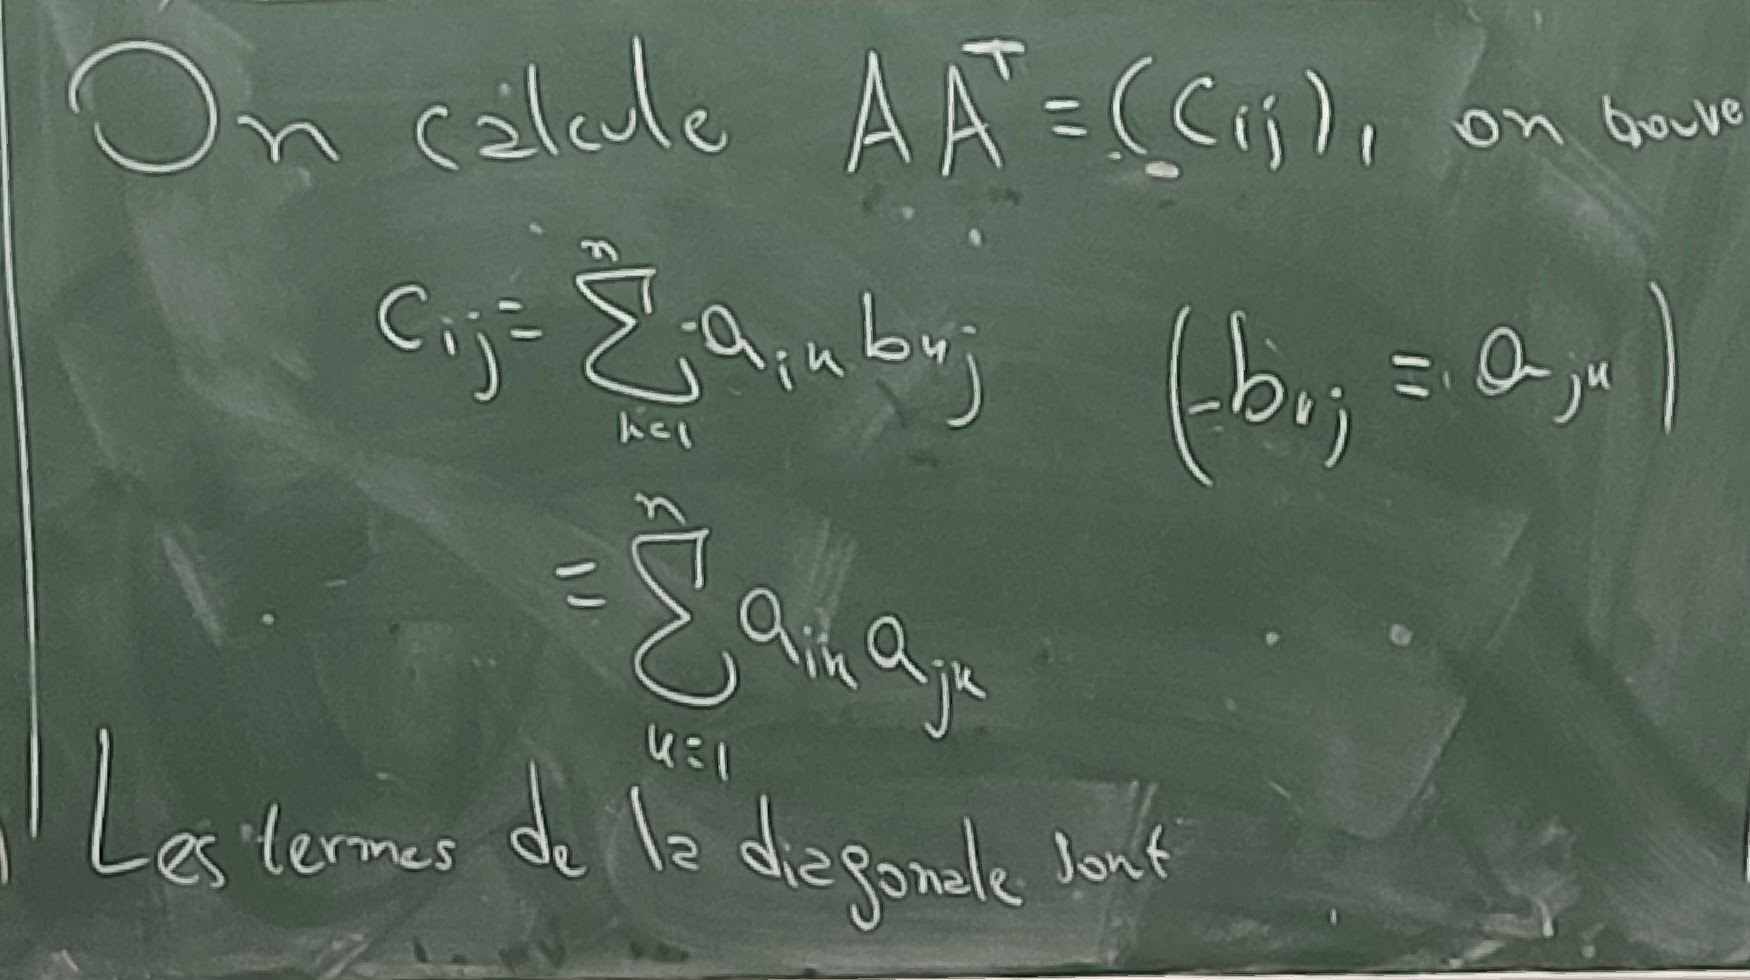 On calcule AAᵀ = (Cij), on trouve
Cij = ∑_{k=1}^{n} a_{ik} b_{kj} (b_{kj} = a_{jk})
= ∑_{k=1}^{n} a_{ik} a_{jk}
Les termes de la diagonale sont